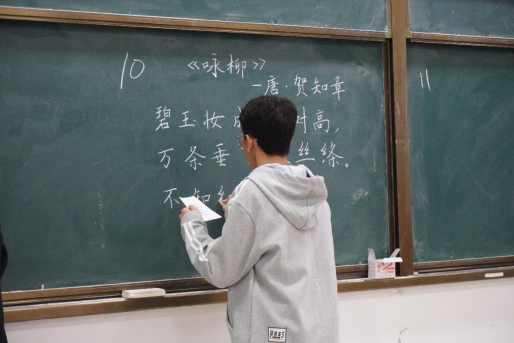 10
《咏柳》
—唐·贺知章
碧玉妆成 对高，
万条垂 丝绦。
不知
11